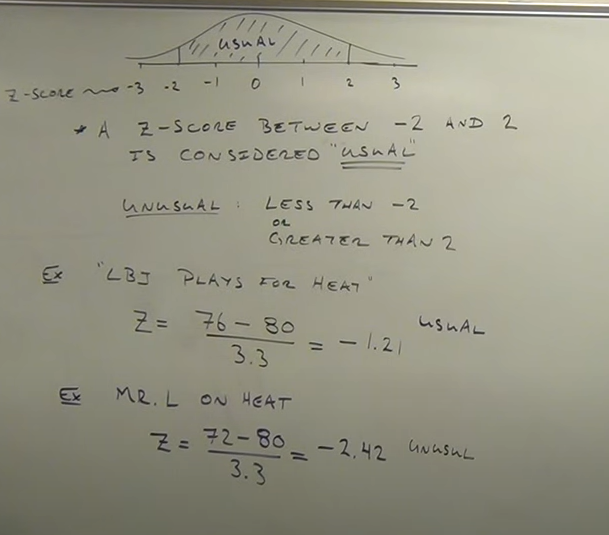 USUAL
Z-SCORE -3 -2 -1 0 1 2 3
* A Z-SCORE BETWEEN -2 AND 2
IS CONSIDERED "USUAL"
UNUSUAL: LESS THAN -2
OR
GREATER THAN 2
EX "LBJ PLAYS FOR HEAT"
Z = 76 - 80 / 3.3 = -1.21 USUAL
EX MR. L ON HEAT
Z = 72 - 80 / 3.3 = -2.42 UNUSUL